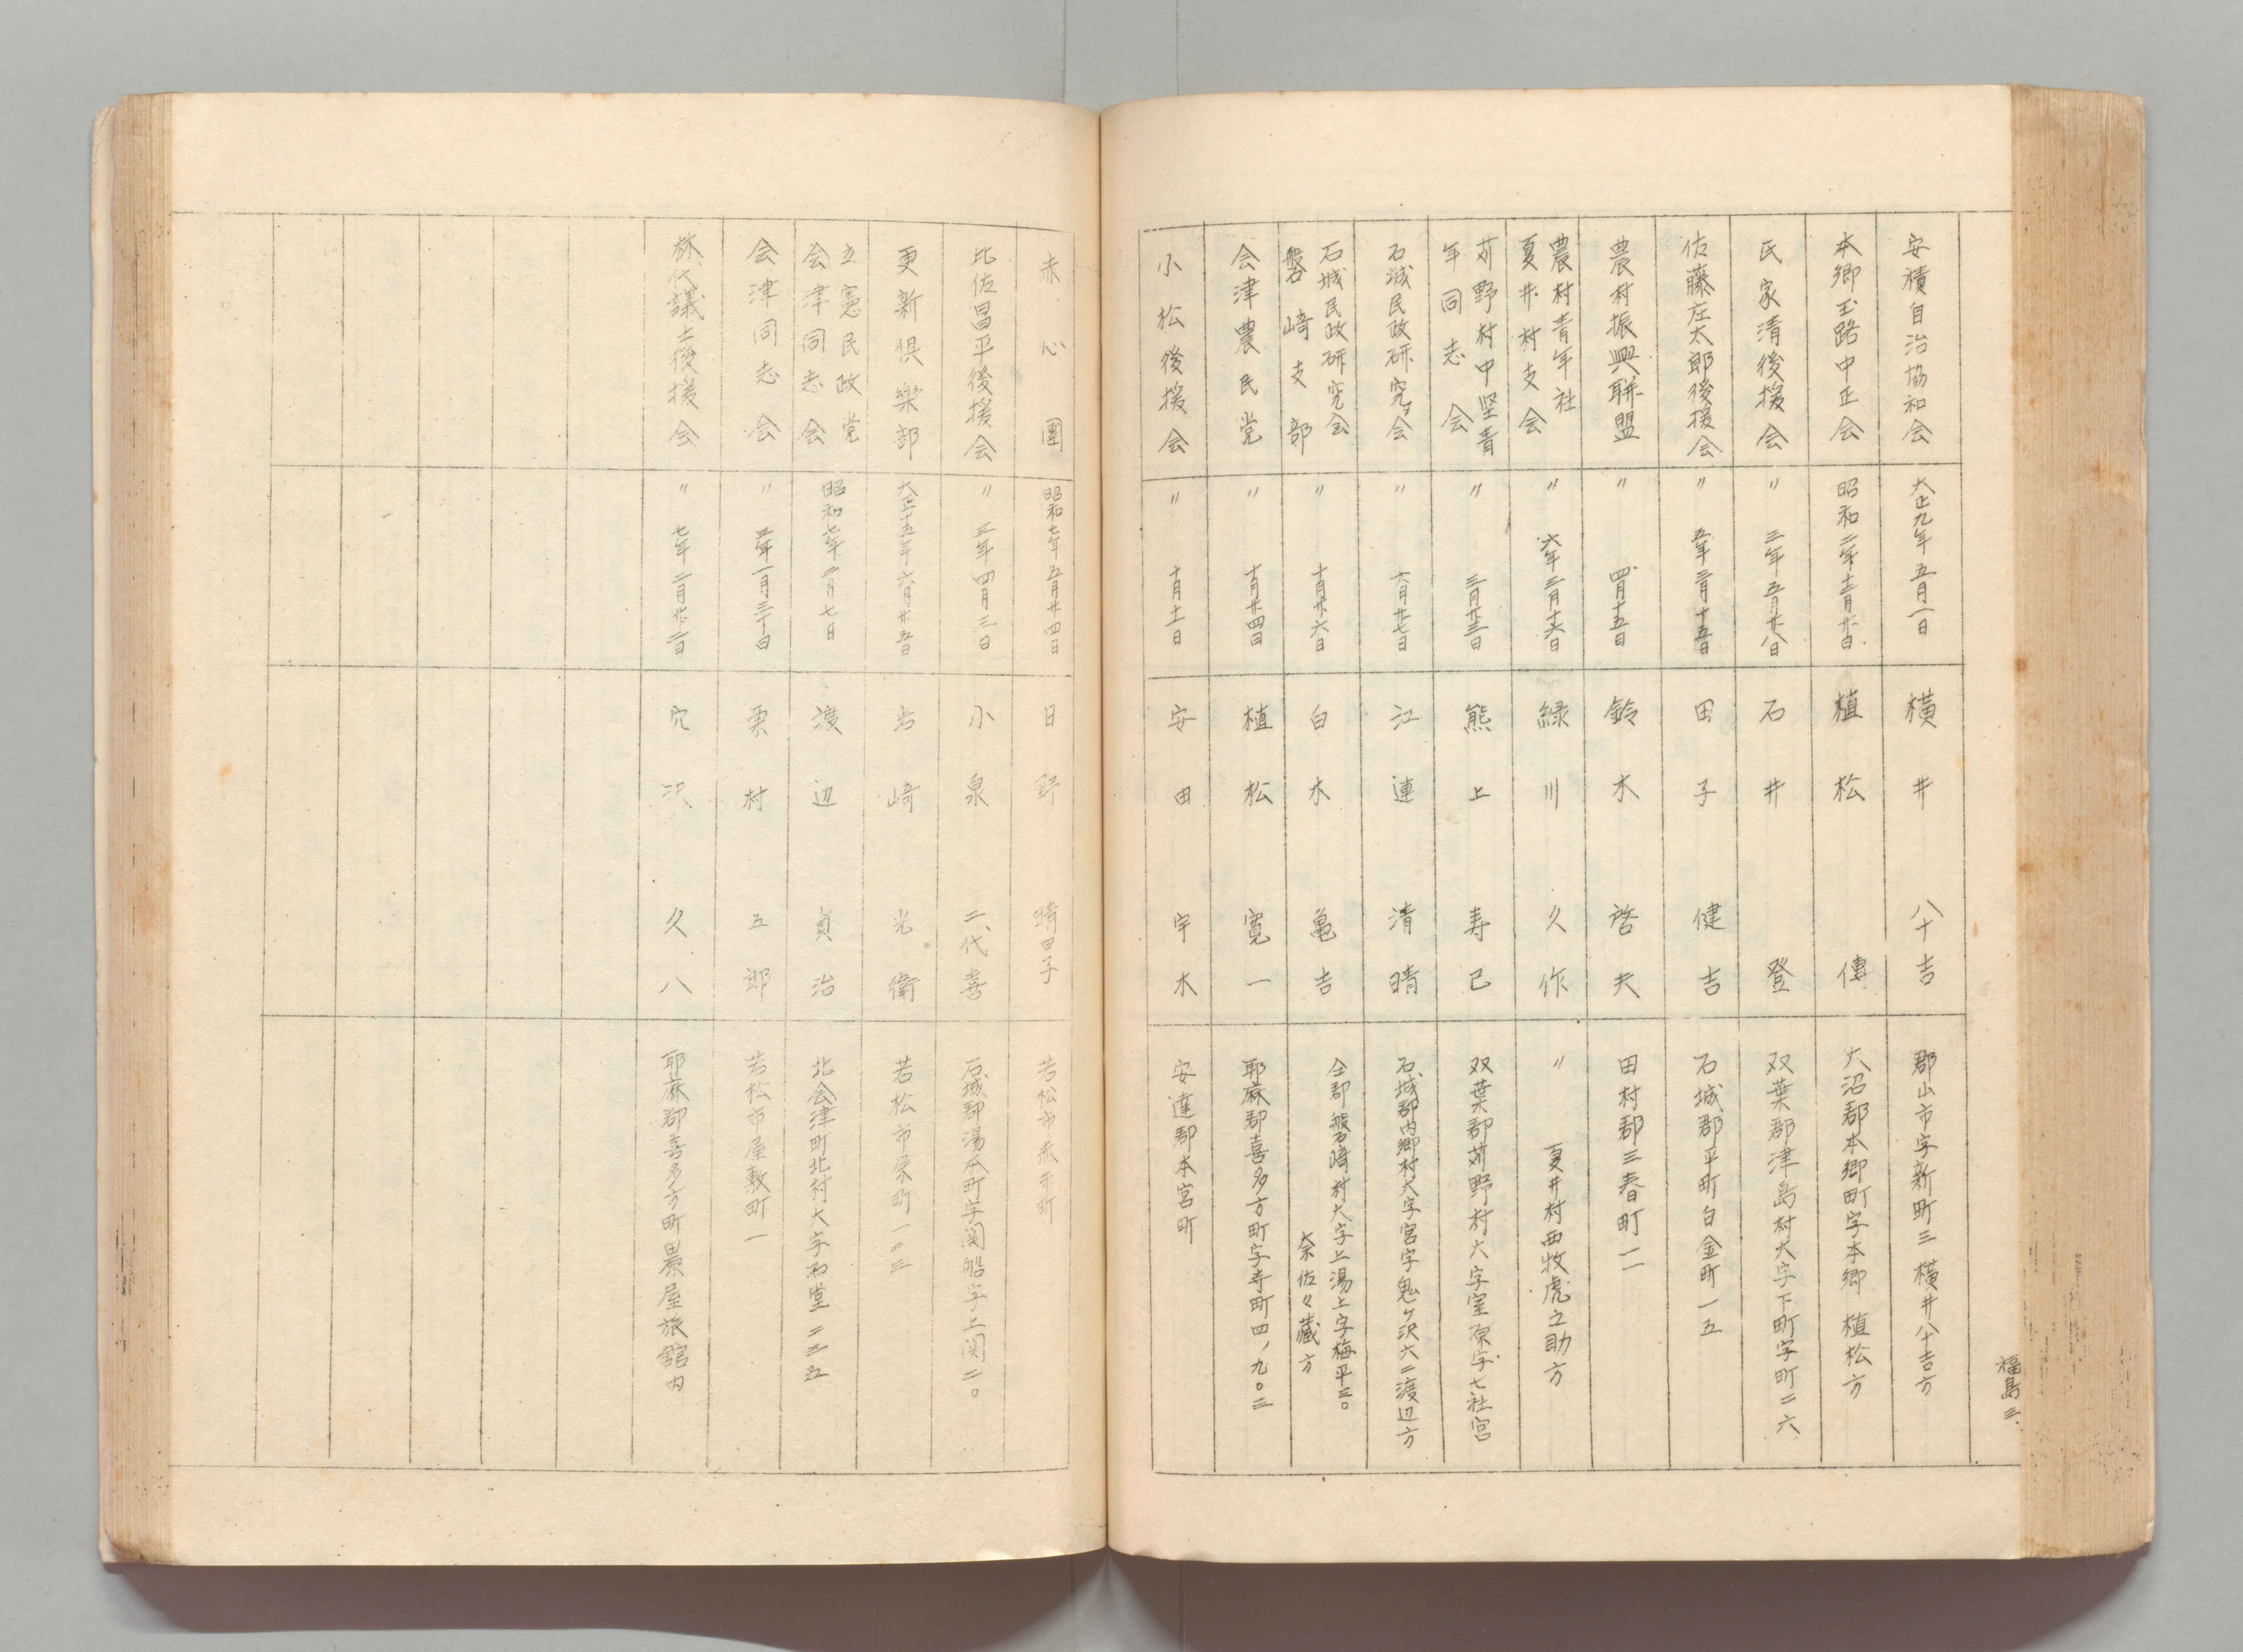 福島三、
安積自治協和会 大正九年五月一日 横井八十吉 郡山市字新町三 横井八十吉方
本郷玉路中正会 昭和二年十二月廿日 植松傳 大沼郡本郷町字本郷 植松方
氏家清後援会 〃 三年五月廿八日 石井登 双葉郡津島村大字下町字町二六
佐藤庄太郎後援会 〃 五年三月十五日 田子健吉 石城郡平町白金町一五
農村振興聯盟 〃 四月十五日 鈴木啓夫 田村郡三春町一一
農村青年社
夏井村支会 〃 六年三月十六日 緑川久作 〃 夏井村西牧虎之助方
苅野村中堅青
年同志会 〃 三月廿三日 熊上寿己 双葉郡苅野村大字室原字七社宮
石城民政研究会 〃 六月廿七日 江連清晴 石城郡内郷村大字宮字鬼ヶ沢六二渡辺方
石城民政研究会
磐崎支部 〃 十月廿六日 白木亀吉 仝郡磐崎村大字上湯上字梅平三〇
奈佐々蔵方
会津農民党 〃 十月廿四日 植松寛一 耶麻郡喜多方町字寺町四、九〇二
小松後援会 〃 十月十一日 安田宇木 安達郡本宮町
赤心團 昭和七年五月廿四日 日野晴田子 若松市赤井町
比佐昌平後援会 〃 三年四月三日 小泉二代喜 石城郡湯本町字関船字上関二〇
更新倶樂部 大正十五年六月廿五日 岩崎光衛 若松市栄町一三三
立憲民政党
会津同志会 昭和七年二月七日 渡辺貞治 北会津町北村大字石堂二三五
会津同志会 〃 五年一月三十日 栗村五郎 若松市屋敷町一
林代議士後援会 〃 七年二月廿二日 穴沢久八 耶麻郡喜多方町異屋旅館内